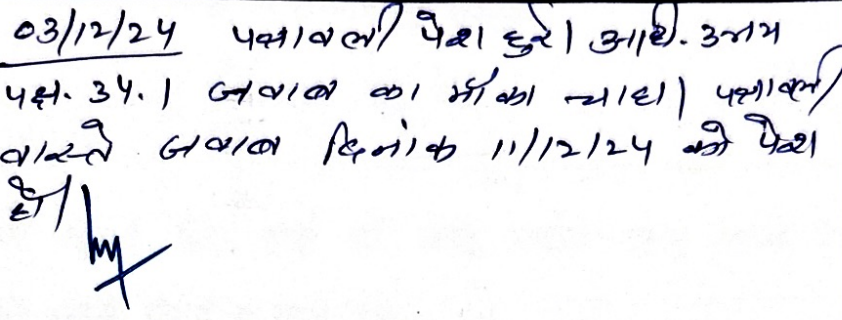 03/12/24 पत्रावली पेश हुई। अधि. उभय
पक्ष. उप.। जवाब का मौका चाहा। पत्रावली
वास्ते जवाब दिनांक 11/12/24 को पेश
हो।